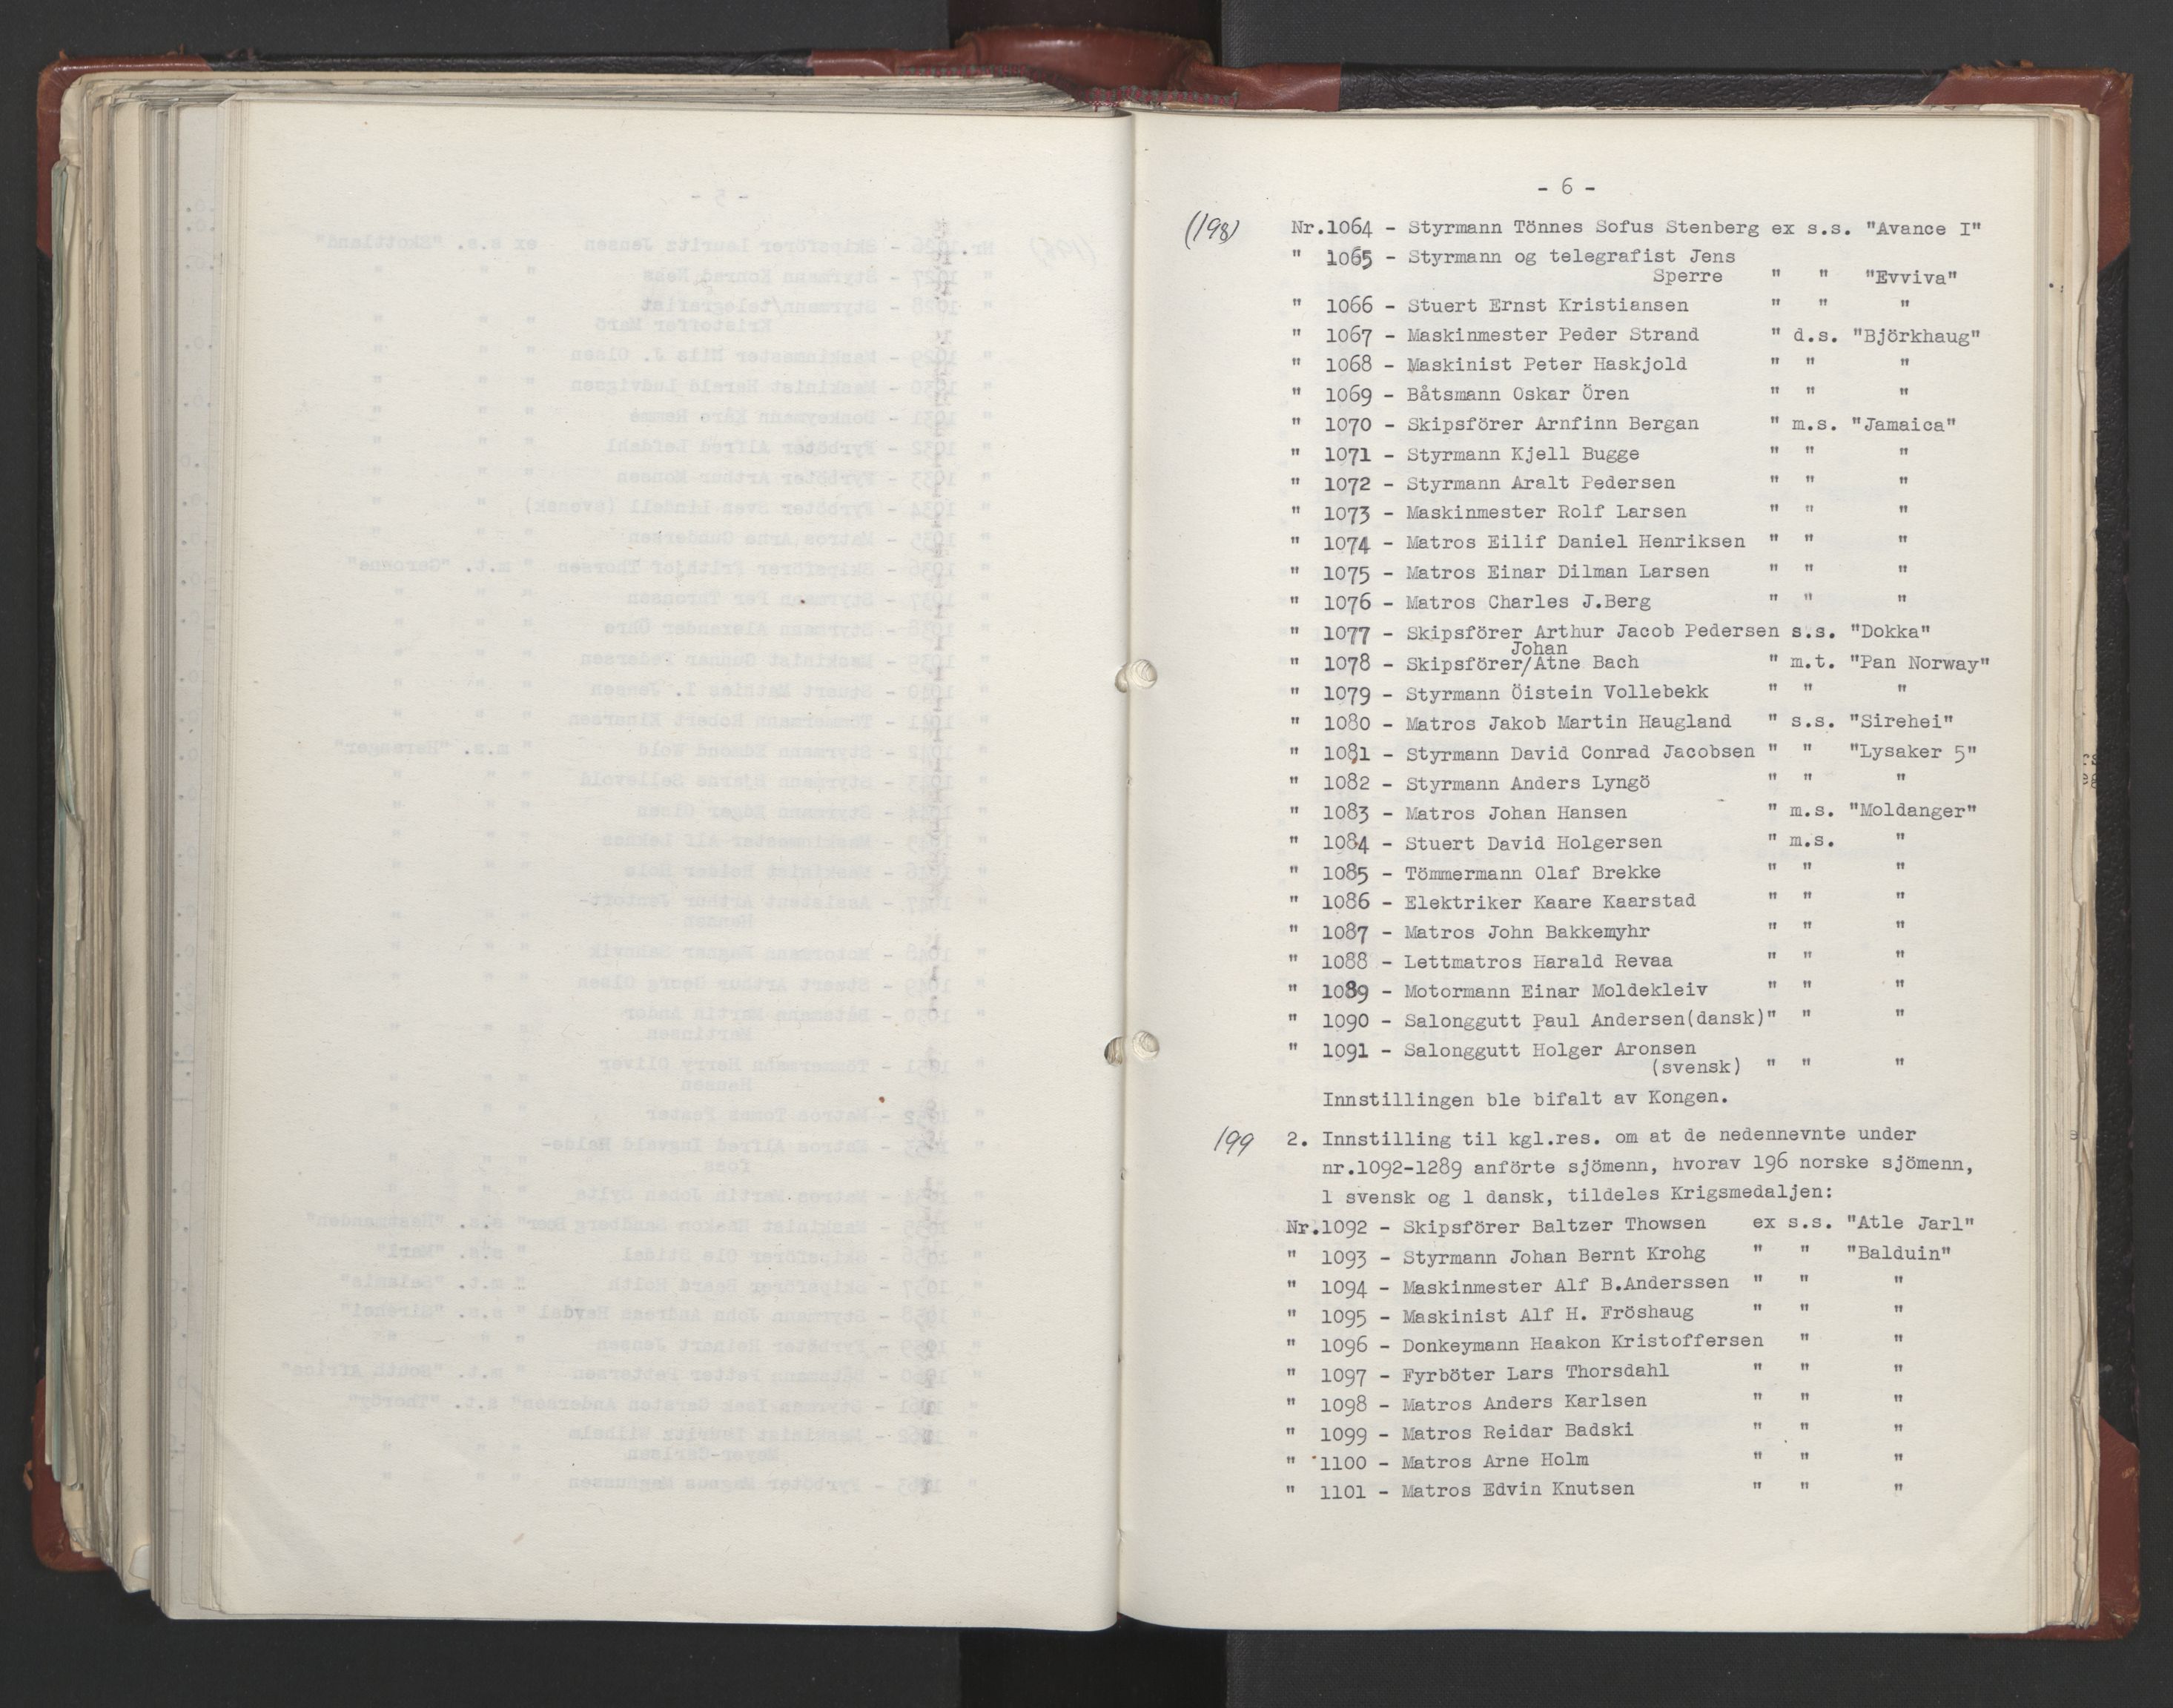 - 6 -
(198) Nr.1064 - Styrmann Tönnes Sofus Stenberg ex s.s. "Avance I"
" 1065 - Styrmann og telegrafist Jens
Sperre " " "Evviva"
" 1066 - Stuert Ernst Kristiansen " " "
" 1067 - Maskinmester Peder Strand " d.s. "Björkhaug"
" 1068 - Maskinist Peter Haskjold " " "
" 1069 - Båtsmann Oskar Ören " " "
" 1070 - Skipsförer Arnfinn Bergan " m.s. "Jamaica"
" 1071 - Styrmann Kjell Bugge " " "
" 1072 - Styrmann Aralt Pedersen " " "
" 1073 - Maskinmester Rolf Larsen " " "
" 1074 - Matros Eilif Daniel Henriksen " " "
" 1075 - Matros Einar Dilman Larsen " " "
" 1076 - Matros Charles J.Berg " " "
" 1077 - Skipsförer Arthur Jacob Pedersen s.s. "Dokka"
Johan
" 1078 - Skipsförer/Atne Bach " m.t. "Pan Norway"
" 1079 - Styrmann Öistein Vollebekk " " "
" 1080 - Matros Jakob Martin Haugland " s.s. "Sirehei"
" 1081 - Styrmann David Conrad Jacobsen " " "Lysaker 5"
" 1082 - Styrmann Anders Lyngö " " "
" 1083 - Matros Johan Hansen " m.s. "Moldanger"
" 1084 - Stuert David Holgersen " m.s. "
" 1085 - Tömmermann Olaf Brekke " " "
" 1086 - Elektriker Kaare Kaarstad " " "
" 1087 - Matros John Bakkemyhr " " "
" 1088 - Lettmatros Harald Revaa " " "
" 1089 - Motormann Einar Moldekleiv " " "
" 1090 - Salonggutt Paul Andersen(dansk)" " "
" 1091 - Salonggutt Holger Aronsen
(svensk) " " "
Innstillingen ble bifalt av Kongen.
199 2. Innstilling til kgl.res. om at de nedennevnte under
nr.1092-1289 anförte sjömenn, hvorav 196 norske sjömenn,
1 svensk og 1 dansk, tildeles Krigsmedaljen:
Nr.1092 - Skipsförer Baltzer Thowsen ex s.s. "Atle Jarl"
" 1093 - Styrmann Johan Bernt Krohg " " "Balduin"
" 1094 - Maskinmester Alf B.Anderssen " " "
" 1095 - Maskinist Alf H. Fröshaug " " "
" 1096 - Donkeymann Haakon Kristoffersen " "
" 1097 - Fyrböter Lars Thorsdahl " " "
" 1098 - Matros Anders Karlsen " " "
" 1099 - Matros Reidar Badski " " "
" 1100 - Matros Arne Holm " " "
" 1101 - Matros Edvin Knutsen " " "